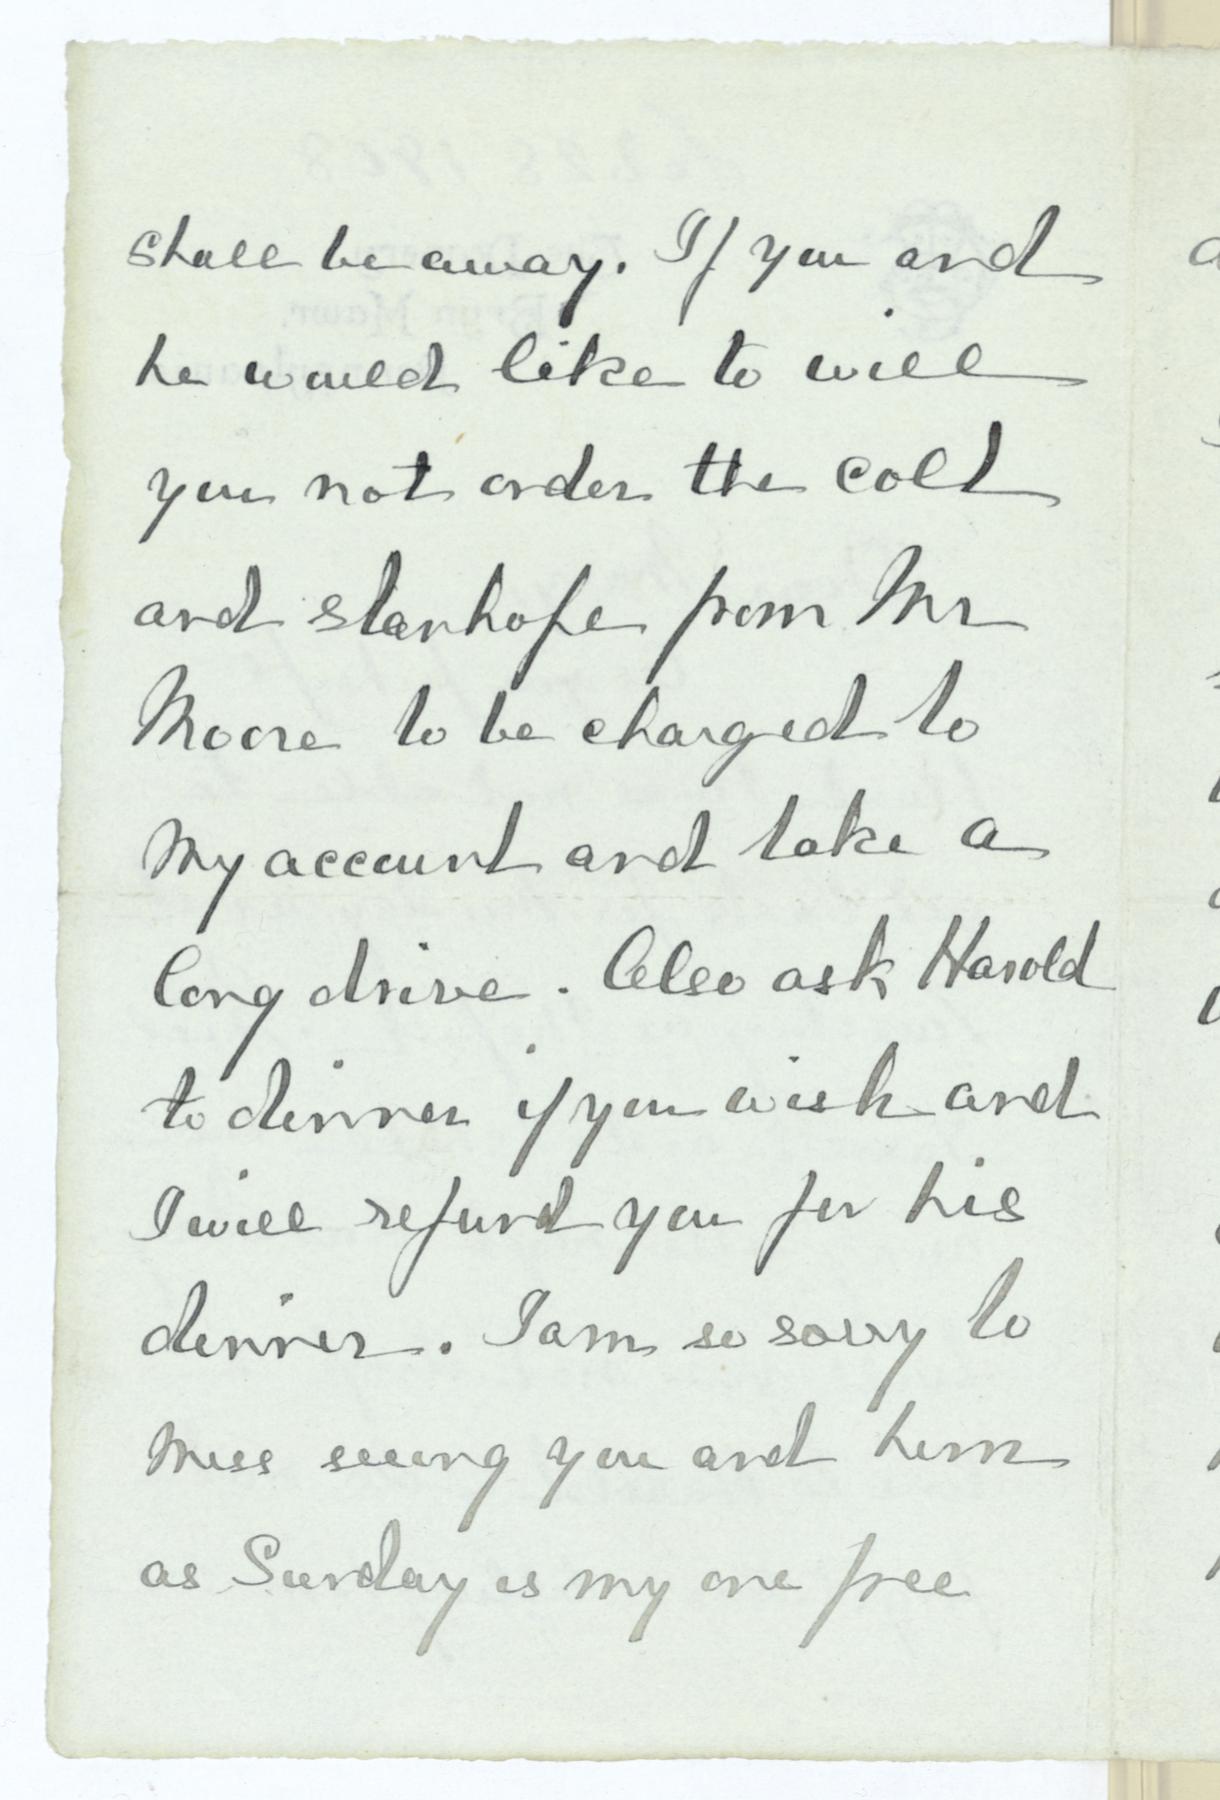 shall be away. If you and
he would like to will
you not order the colt
and stanhope from Mr
Moore to be charged to
my account and take a
long drive. Also ask Harold
to dinner if you wish and
I will refund you for his
dinner. I am so sorry to
miss seeing you and him
as Sunday is my one free